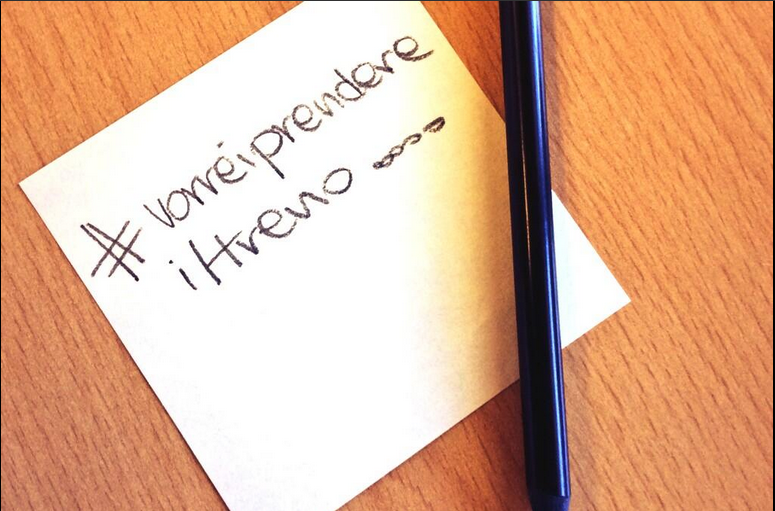 #vorreiprendere
iltreno ....